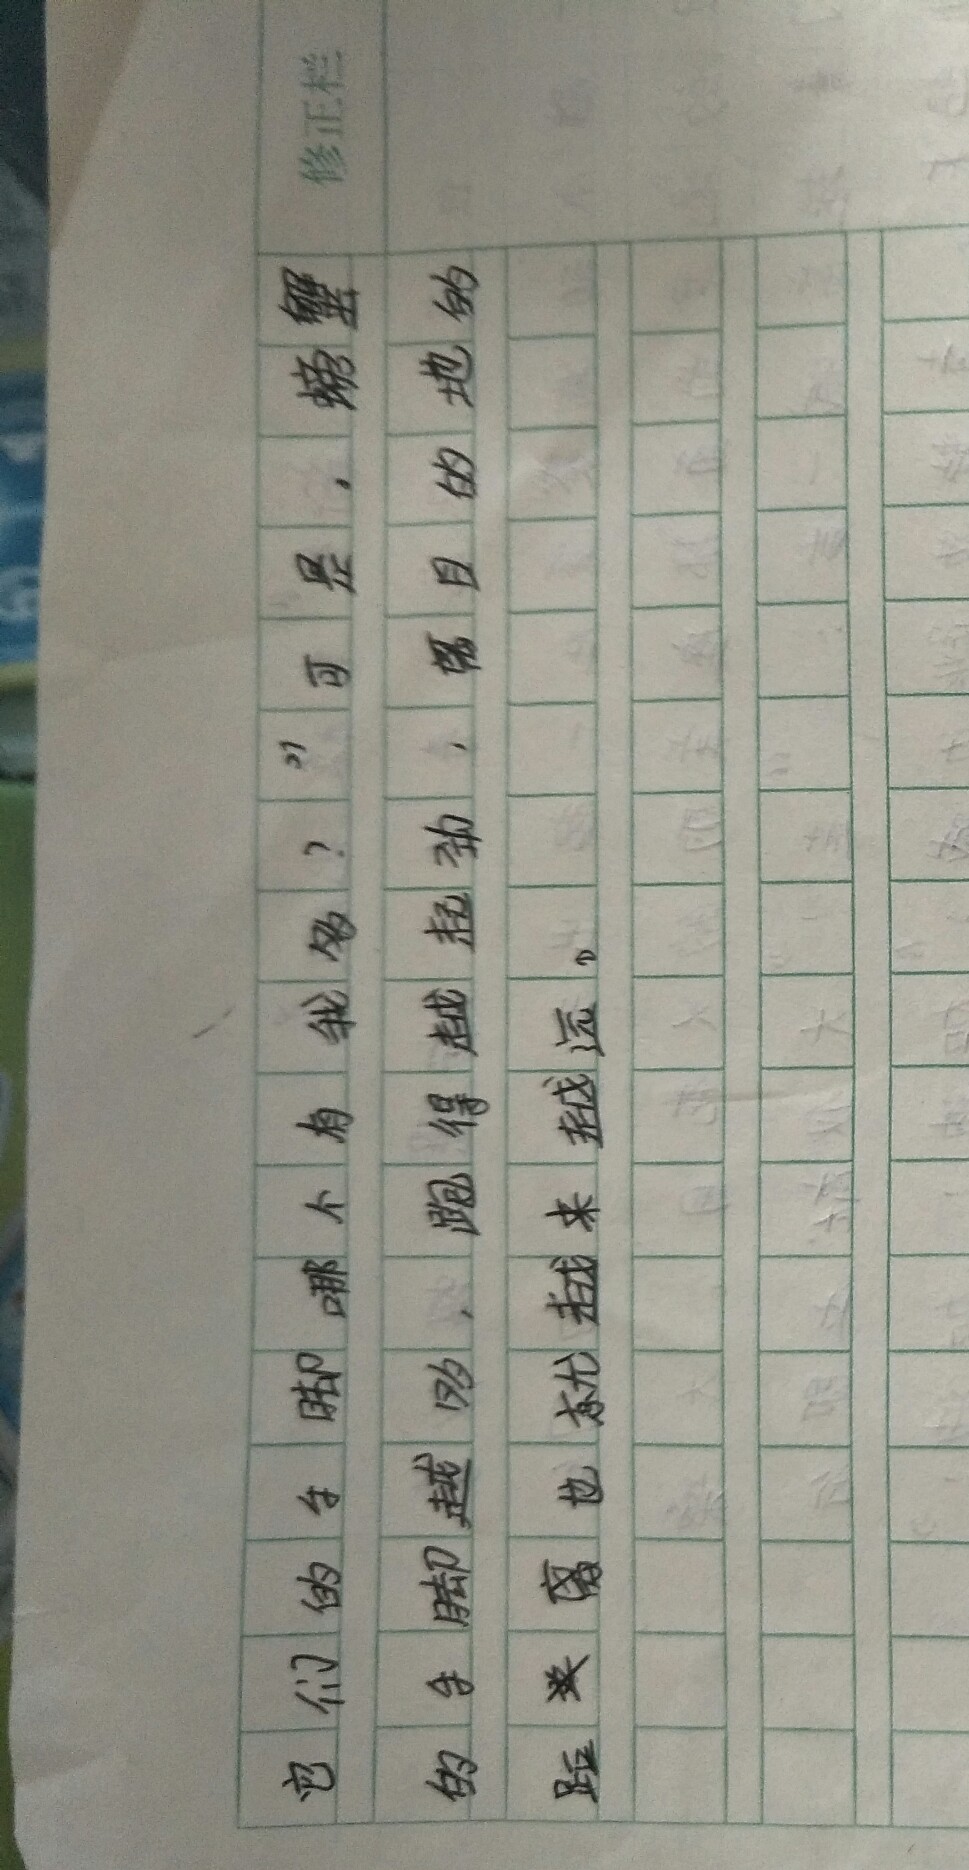 修正栏
它们的手脚哪个有我多？”可是，螃蟹
的手脚越多，跑得越起劲，离目的地的
距离也就越来越远。”